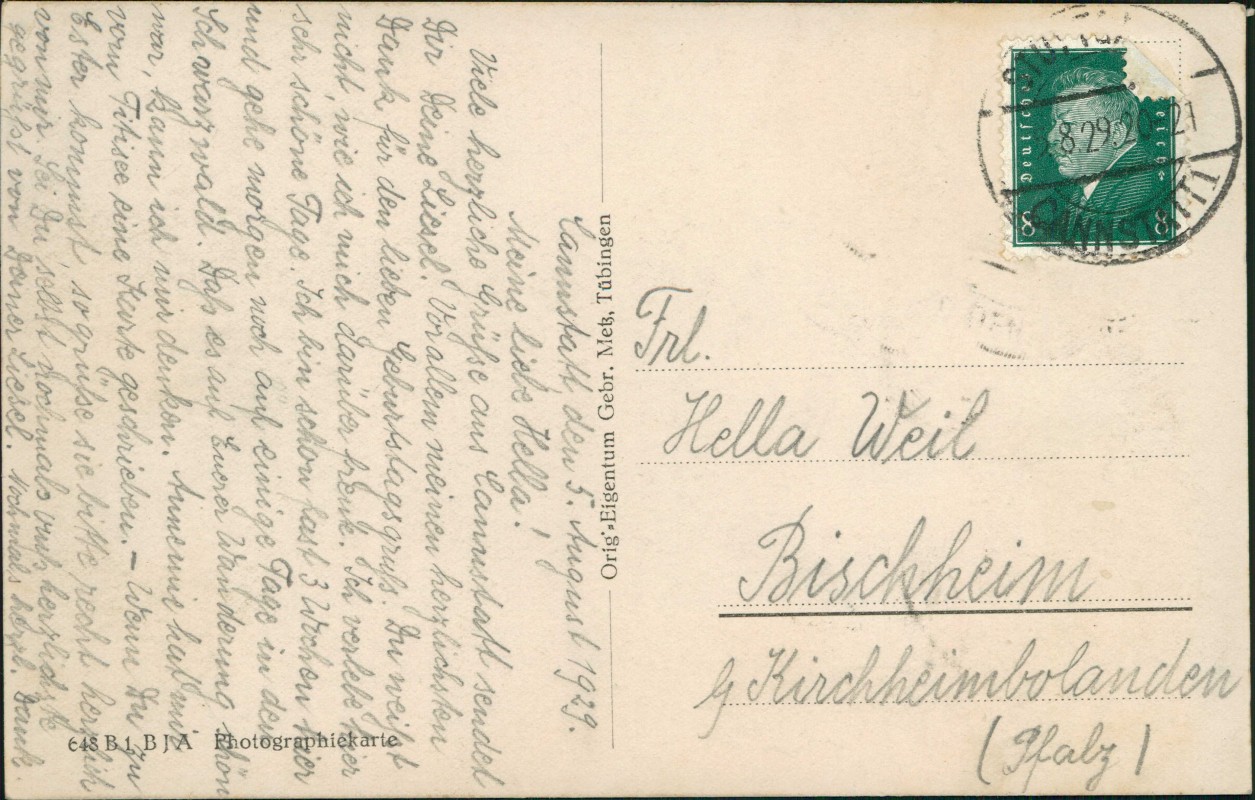 Cannstatt, den 5. August 1929.
Meine liebe Hella!
Viele herzliche Grüße aus Cannstatt sendet
Dir Deine Liesel. Vor allem meinen herzlichsten
Dank für den lieben Geburtstagsgruß. Du weißt
nicht, wie ich mich darüber freute. Ich verlebe hier
sehr schöne Tage. Ich bin schon fast 3 Wochen hier
und gehe morgen noch auf einige Tage in den
Schwarzwald. Daß es auf Eurer Wanderung schön
war, kann ich mir denken. Annemie hat mir
vom Titisee eine Karte geschrieben. – Wenn Du zu
Ester kommst, so grüße sie bitte recht herzlich
von mir. Sei Du selbst nochmals recht herzlichste
gegrüßt von Deiner Liesel. Nochmals herzl. Dank.
648 B 1 B J A Photographiekarte
Orig.-Eigentum Gebr. Metz, Tübingen
8.29.20-21
CANNSTATT
Deutsches
Reich
8 8
Frl.
Hella Weil
Bischheim
b/ Kirchheimbolanden
(Pfalz)